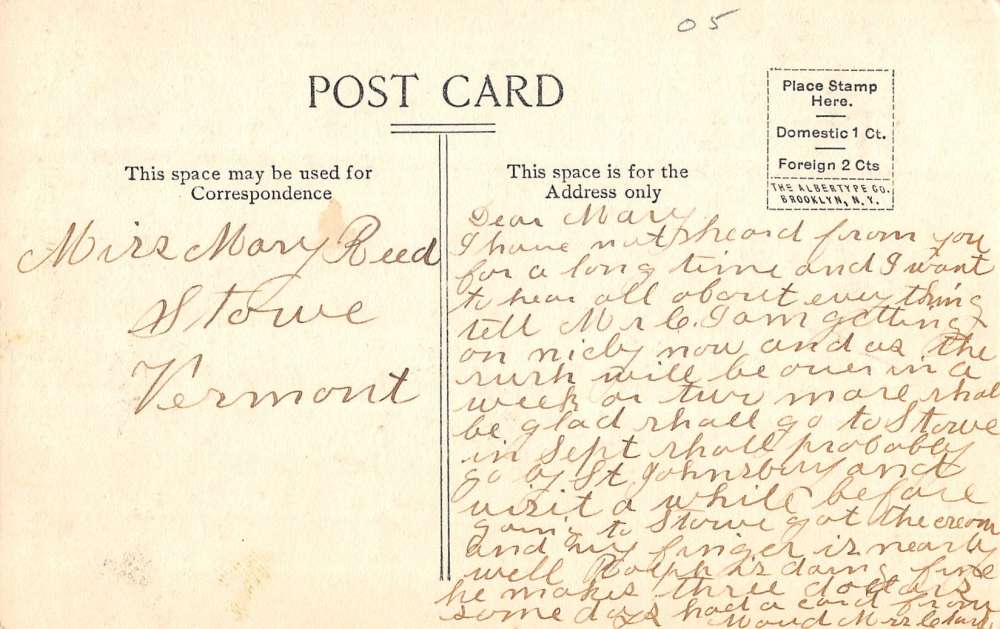 05
POST CARD
Place Stamp
Here.
Domestic 1 Ct.
Foreign 2 Cts
THE ALBERTYPE CO.
BROOKLYN, N. Y.
This space may be used for
Correspondence
This space is for the
Address only
Miss Mary Reed
Stowe
Vermont
Dear Mary
I have not heard from you
for a long time and I want
to hear all about everything
tell Mr C. I am getting
on nicly now and as the
rush will be over in a
week or two more shal
be glad shall go to Stowe
in Sept shall probably
go by St Johnsbury and
visit a while before
going to Stowe got the cream
and my finger is nearly
well Ralph is doing fine
he makes three dollars
some days had a card from
Maud Miss